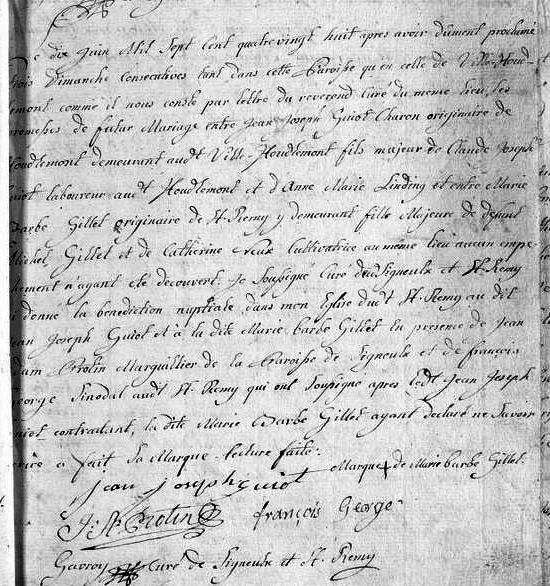 e dix Juin Mil Sept Cent quatre vingt huit apres avoir dûment proclamé
rois Dimanche Consecutives tant dans cette Paroisse qu'en celle de Ville-Houd-
lemont comme il nous conste par lettre du reverend Curé du meme lieu, les
promesses de futur Mariage entre Jean Joseph Guiot Charon originaire de
Houdlemont demeurant audt Ville-Houdlemont fils majeur de Claude Joseph
uiot laboureur audt Houdlemont et d'Anne Marie Linding et entre Marie
Barbe Gillet originaire de St Remy y demeurant fille Majeure de defunt
Michel Gillet et de Catherine cultivatrice au même lieu aucun empe-
hement n'ayant été decouvert. Je Soussigné Curé de Signeulx et St Remy
i donné la benediction nuptiale dans mon Eglise dudt St Remy au dit
ean Joseph Guiot et à la dite Marie barbe Gillet En presence de Jean
Protin Marguillier de la Paroisse de Signeulx et de françois
eorge Sinodal audt St Remy qui ont Soussigné apres ledt Jean Joseph
uiot contractant, la dite Marie Barbe Gillet ayant declaré ne Savoir
crire a fait Sa Marque - lecture faite.
jean joseph guiot Marque + de Marie barbe Gillet.
Protin françois George
Gavroy Curé de Signeulx et St Remy